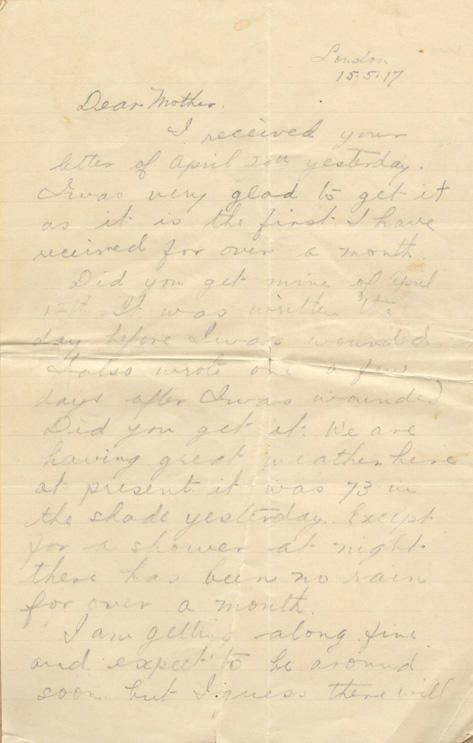 London
15.5.17
Dear Mother.
I received your
letter of April 20th yesterday.
I was very glad to get it
as it is the first I have
received for over a month.
Did you get mine of April
It was written the
day before I was wounded
I also wrote one a few
days after I was wounded
Did you get it. We are
having great weather here
at present it was 73 in
the shade yesterday. Except
for a shower at night
there has been no rain
for over a month.
I am getting along fine
and expect to be around
soon but I guess there will